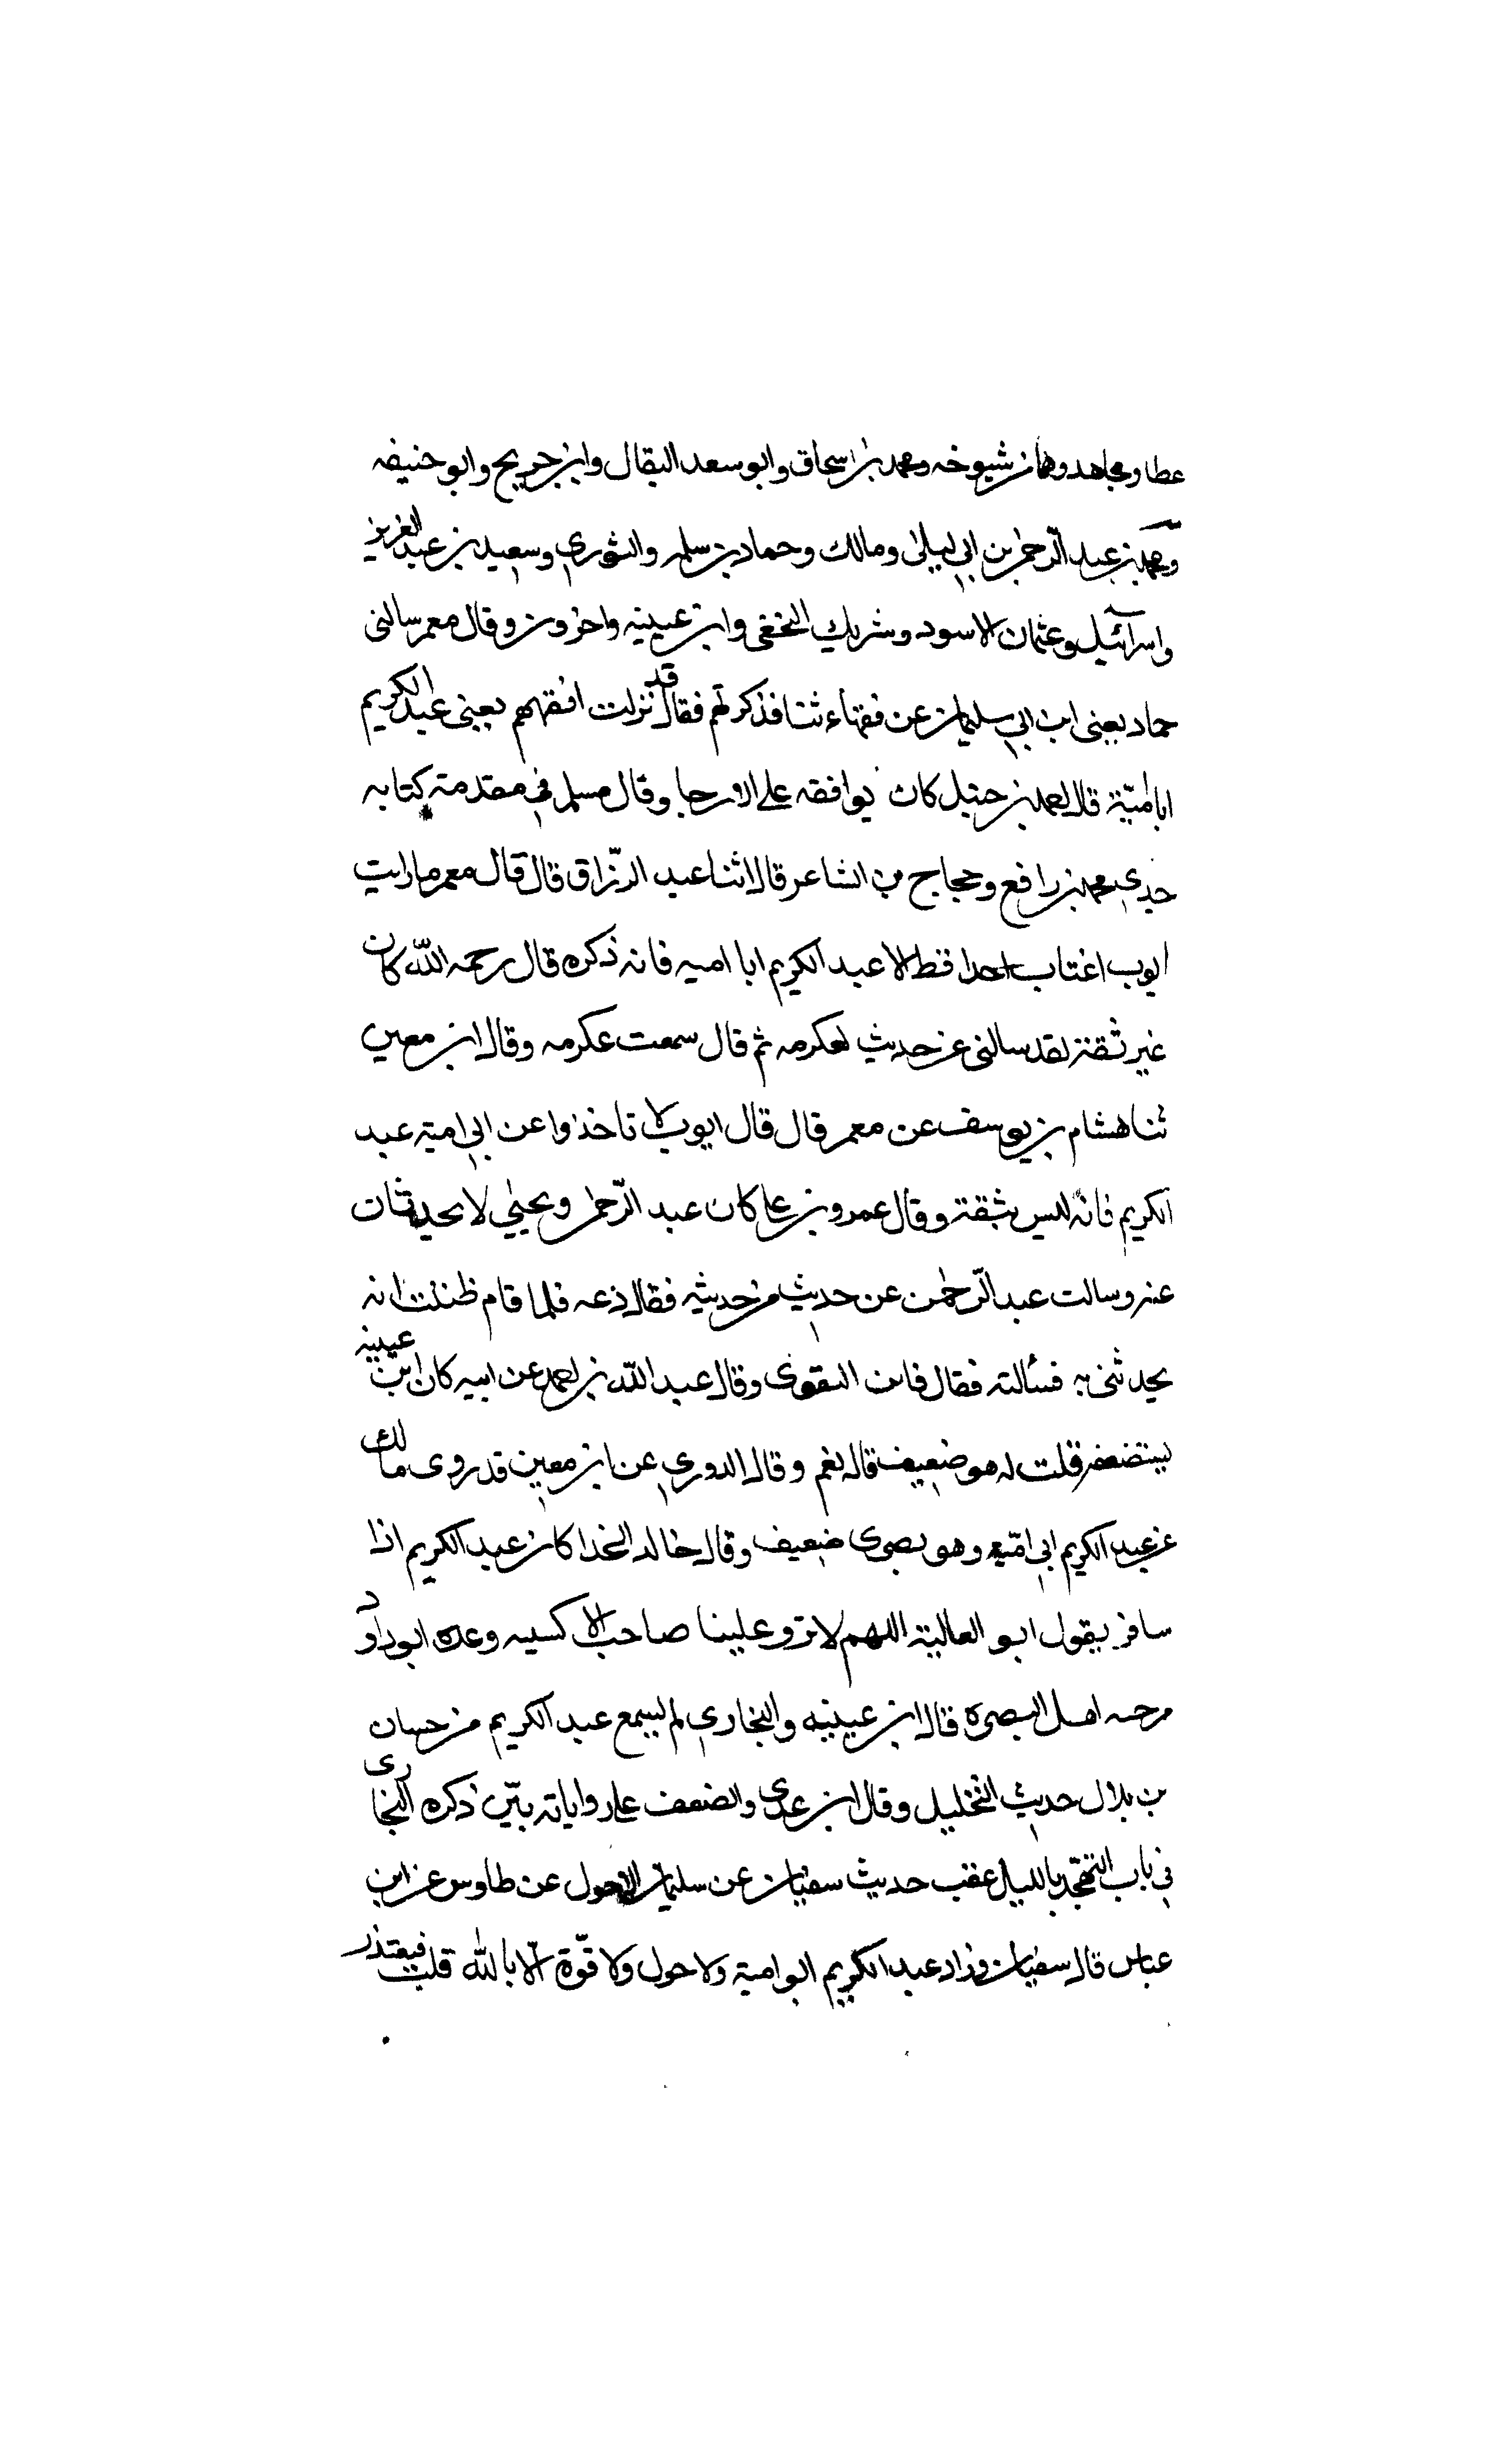 عطا ومجاهد وهما من شيوخه ومحمد بن اسحاق وابو سعد البقال وابن جريج وابو حنيفه
ومحمد بن عبد الرحمن بن ابي ليلى ومالك وحماد بن سلمه والثوري وسعيد بن عبد العزيز
واسرآئيل وعثمان الاسود وشريك النخعي وابن عيينه واخرون وقال معمر سالني
حماد يعني ابن ابي سليمان عن فقهاء ثنا فذكرتهم فقال قد نزلت افقههم يعني عبد الكريم
ابا اميّة قال احمد بن حنبل كان يوافقه على الارجا وقال مسلم في مقدمة كتابه
حدثني محمد بن رافع وحجاج بن الشاعر قالا ثنا عبد الرزّاق قال قال معمر ما رايت
ايوب اغتاب احدا قط الا عبد الكريم ابا اميه فانه ذكره قال رحمه الله كان
غير ثقة لقد سالني عن حديث لعكرمه ثم قال سمعت عكرمه وقال ابن معين
ثنا هشام بن يوسف عن معمر قال قال ايوب لا تاخذوا عن ابي امية عبد
الكريم فانه ليس بثقة وقال عمرو بن علي كان عبد الرّحمن ويحيى لا يحدثان
عنه وسالت عبد الرّحمن عن حديث من حديثه فقال دعه فلما قام ظننت انه
يحدثني به فسألته فقال فاين التقوى وقال عبد الله بن احمد عن ابيه كان ابن عيينه
يستضعفه قلت له هو ضعيف قال نعم وقال الدوري عن ابن معين قد روى مالك
عن عبد الكريم ابي اميّه وهو بصري ضعيف وقال خالد الحذا كان عبد الكريم اذا
سافر يقول ابو العالية اللهم لا ترد علينا صاحب الاكسيه وعده ابو داود
من اهل البصرة قال ابن عيينه والبخاري لم يسمع عبد الكريم من حسان
بن بلال حديث التخليل وقال ابن عدي والضعف على رواياته بيّن ذكره البخاري
في باب التهجّد بالليل عقب حديث سفيان عن سليمان الاحول عن طاوس عن ابن
عباس قال سفيان وزاد عبد الكريم ابو امية ولا حول ولا قوّة الّا بالله قلت فيعتذر